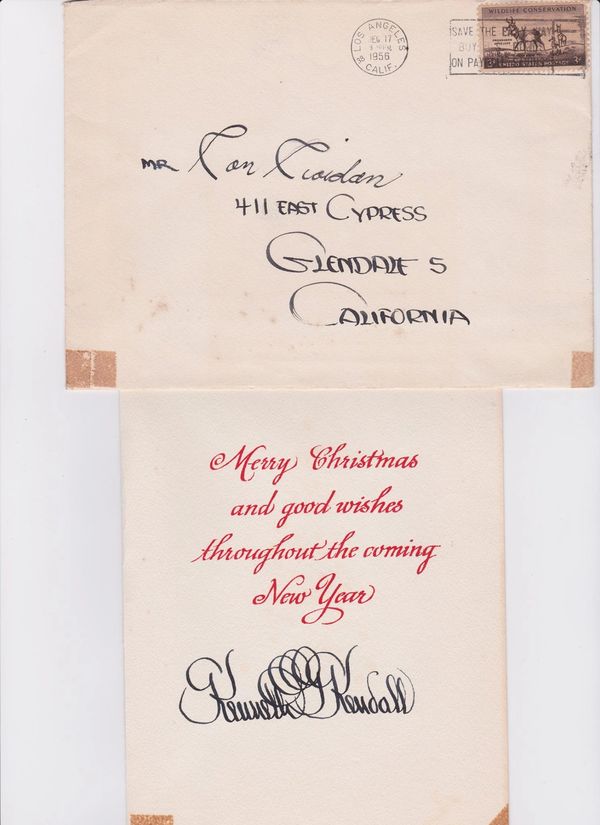 WILDLIFE CONSERVATION
LOS ANGELES
DEC 17
1956
CALIF.
SAVE THE EASY WAY
BUY
ON PAY
3¢ UNITED STATES POSTAGE 3¢
MR Ron Riordan
411 EAST CYPRESS
GLENDALE 5
CALIFORNIA
Merry Christmas
and good wishes
throughout the coming
New Year
Kenneth Kendall